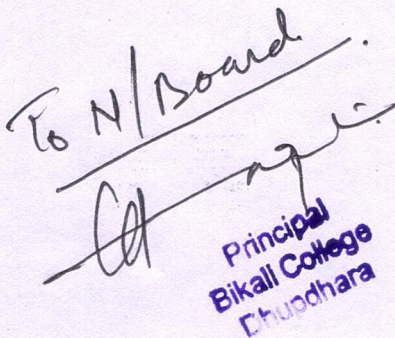 To N/Board.
Principal
Bikali College
Dhupdhara